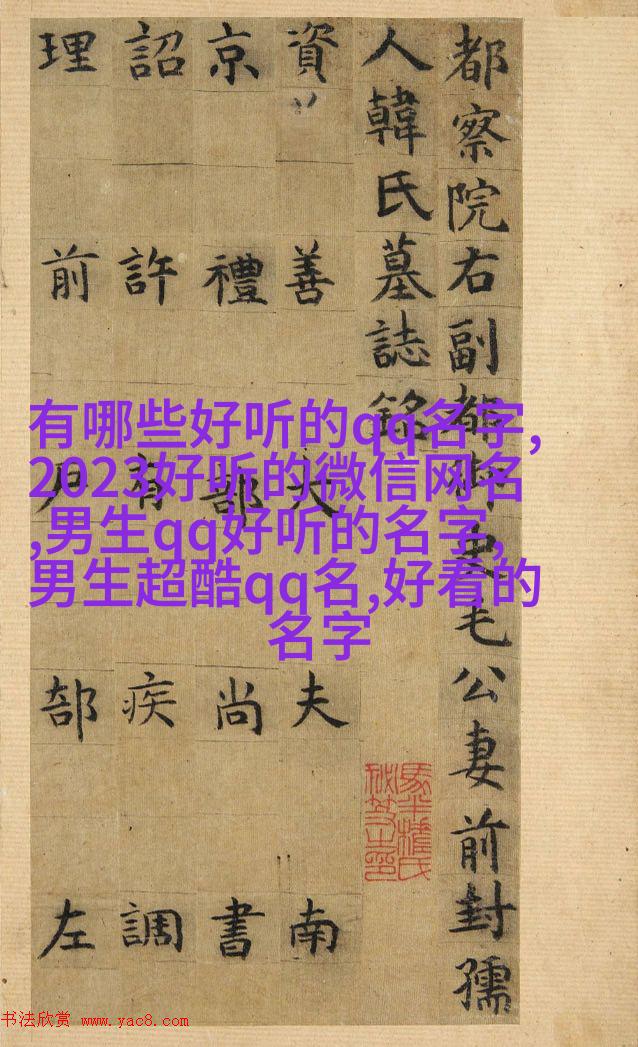 都察院右副都御史毛公妻前封孺
人韓氏墓誌銘
資善大夫南
京禮部尚書
詔許有疾調
理前戶部左
有哪些好听的qq名字,
2023好听的微信网名
,男生qq好听的名字,
男生超酷qq名,好看的
名字
书法欣赏 www.yac8.com